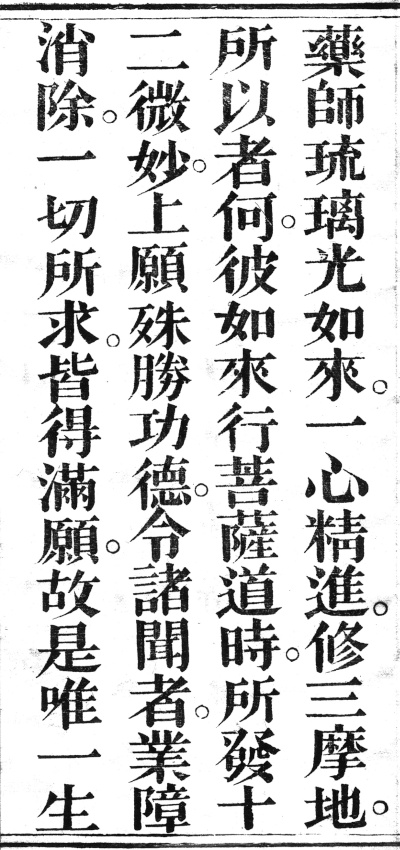 藥師琉璃光如來。一心精進。修三摩地。
所以者何。彼如來行菩薩道時。所發十
二微妙。上願殊勝功德。令諸聞者。業障
消除。一切所求。皆得滿願。故是唯一生